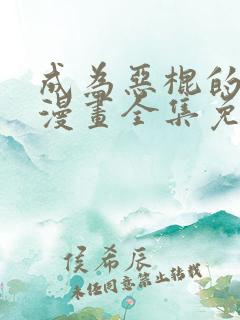 成為惡棍的
漫畫全集免
侯希辰
未任同意禁止转载